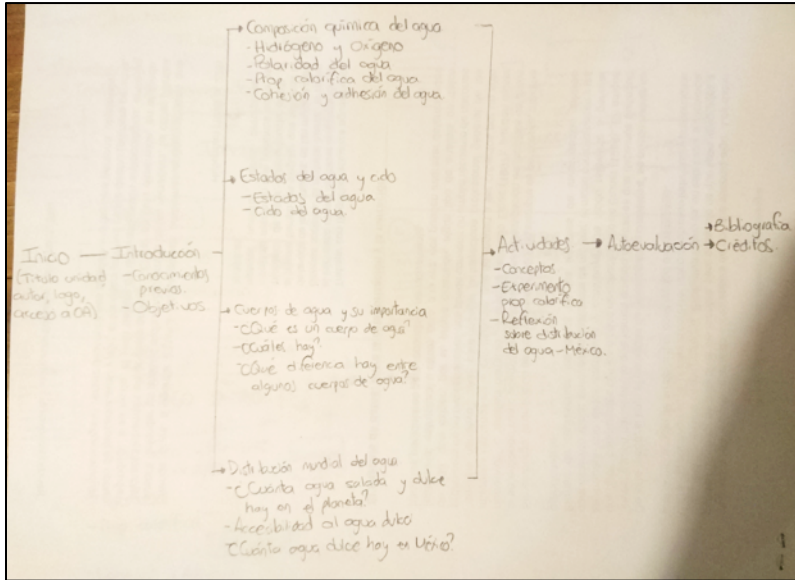 Inicio
(Título unidad,
autor, logo,
acceso a OA)
Introducción
-Conocimientos
previos.
-Objetivos
Composición química del agua
-Hidrógeno y Oxígeno
-Polaridad del agua
-Prop calorífica del agua
-Cohesión y adhesión del agua.
Estados del agua y ciclo
-Estados del agua
-Ciclo del agua.
Cuerpos de agua y su importancia
-¿Qué es un cuerpo de agua?
-¿Cuáles hay?
¿Qué diferencia hay entre
algunos cuerpos de agua?
Distribución mundial del agua
-¿Cuánta agua salada y dulce
hay en el planeta?
-Accesibilidad al agua dulce
¿Cuánta agua dulce hay en México?
Actividades
-Conceptos
-Experimento
prop calorífica
-Reflexión
sobre distribución
del agua-México.
Autoevaluación
Bibliografía
Créditos.